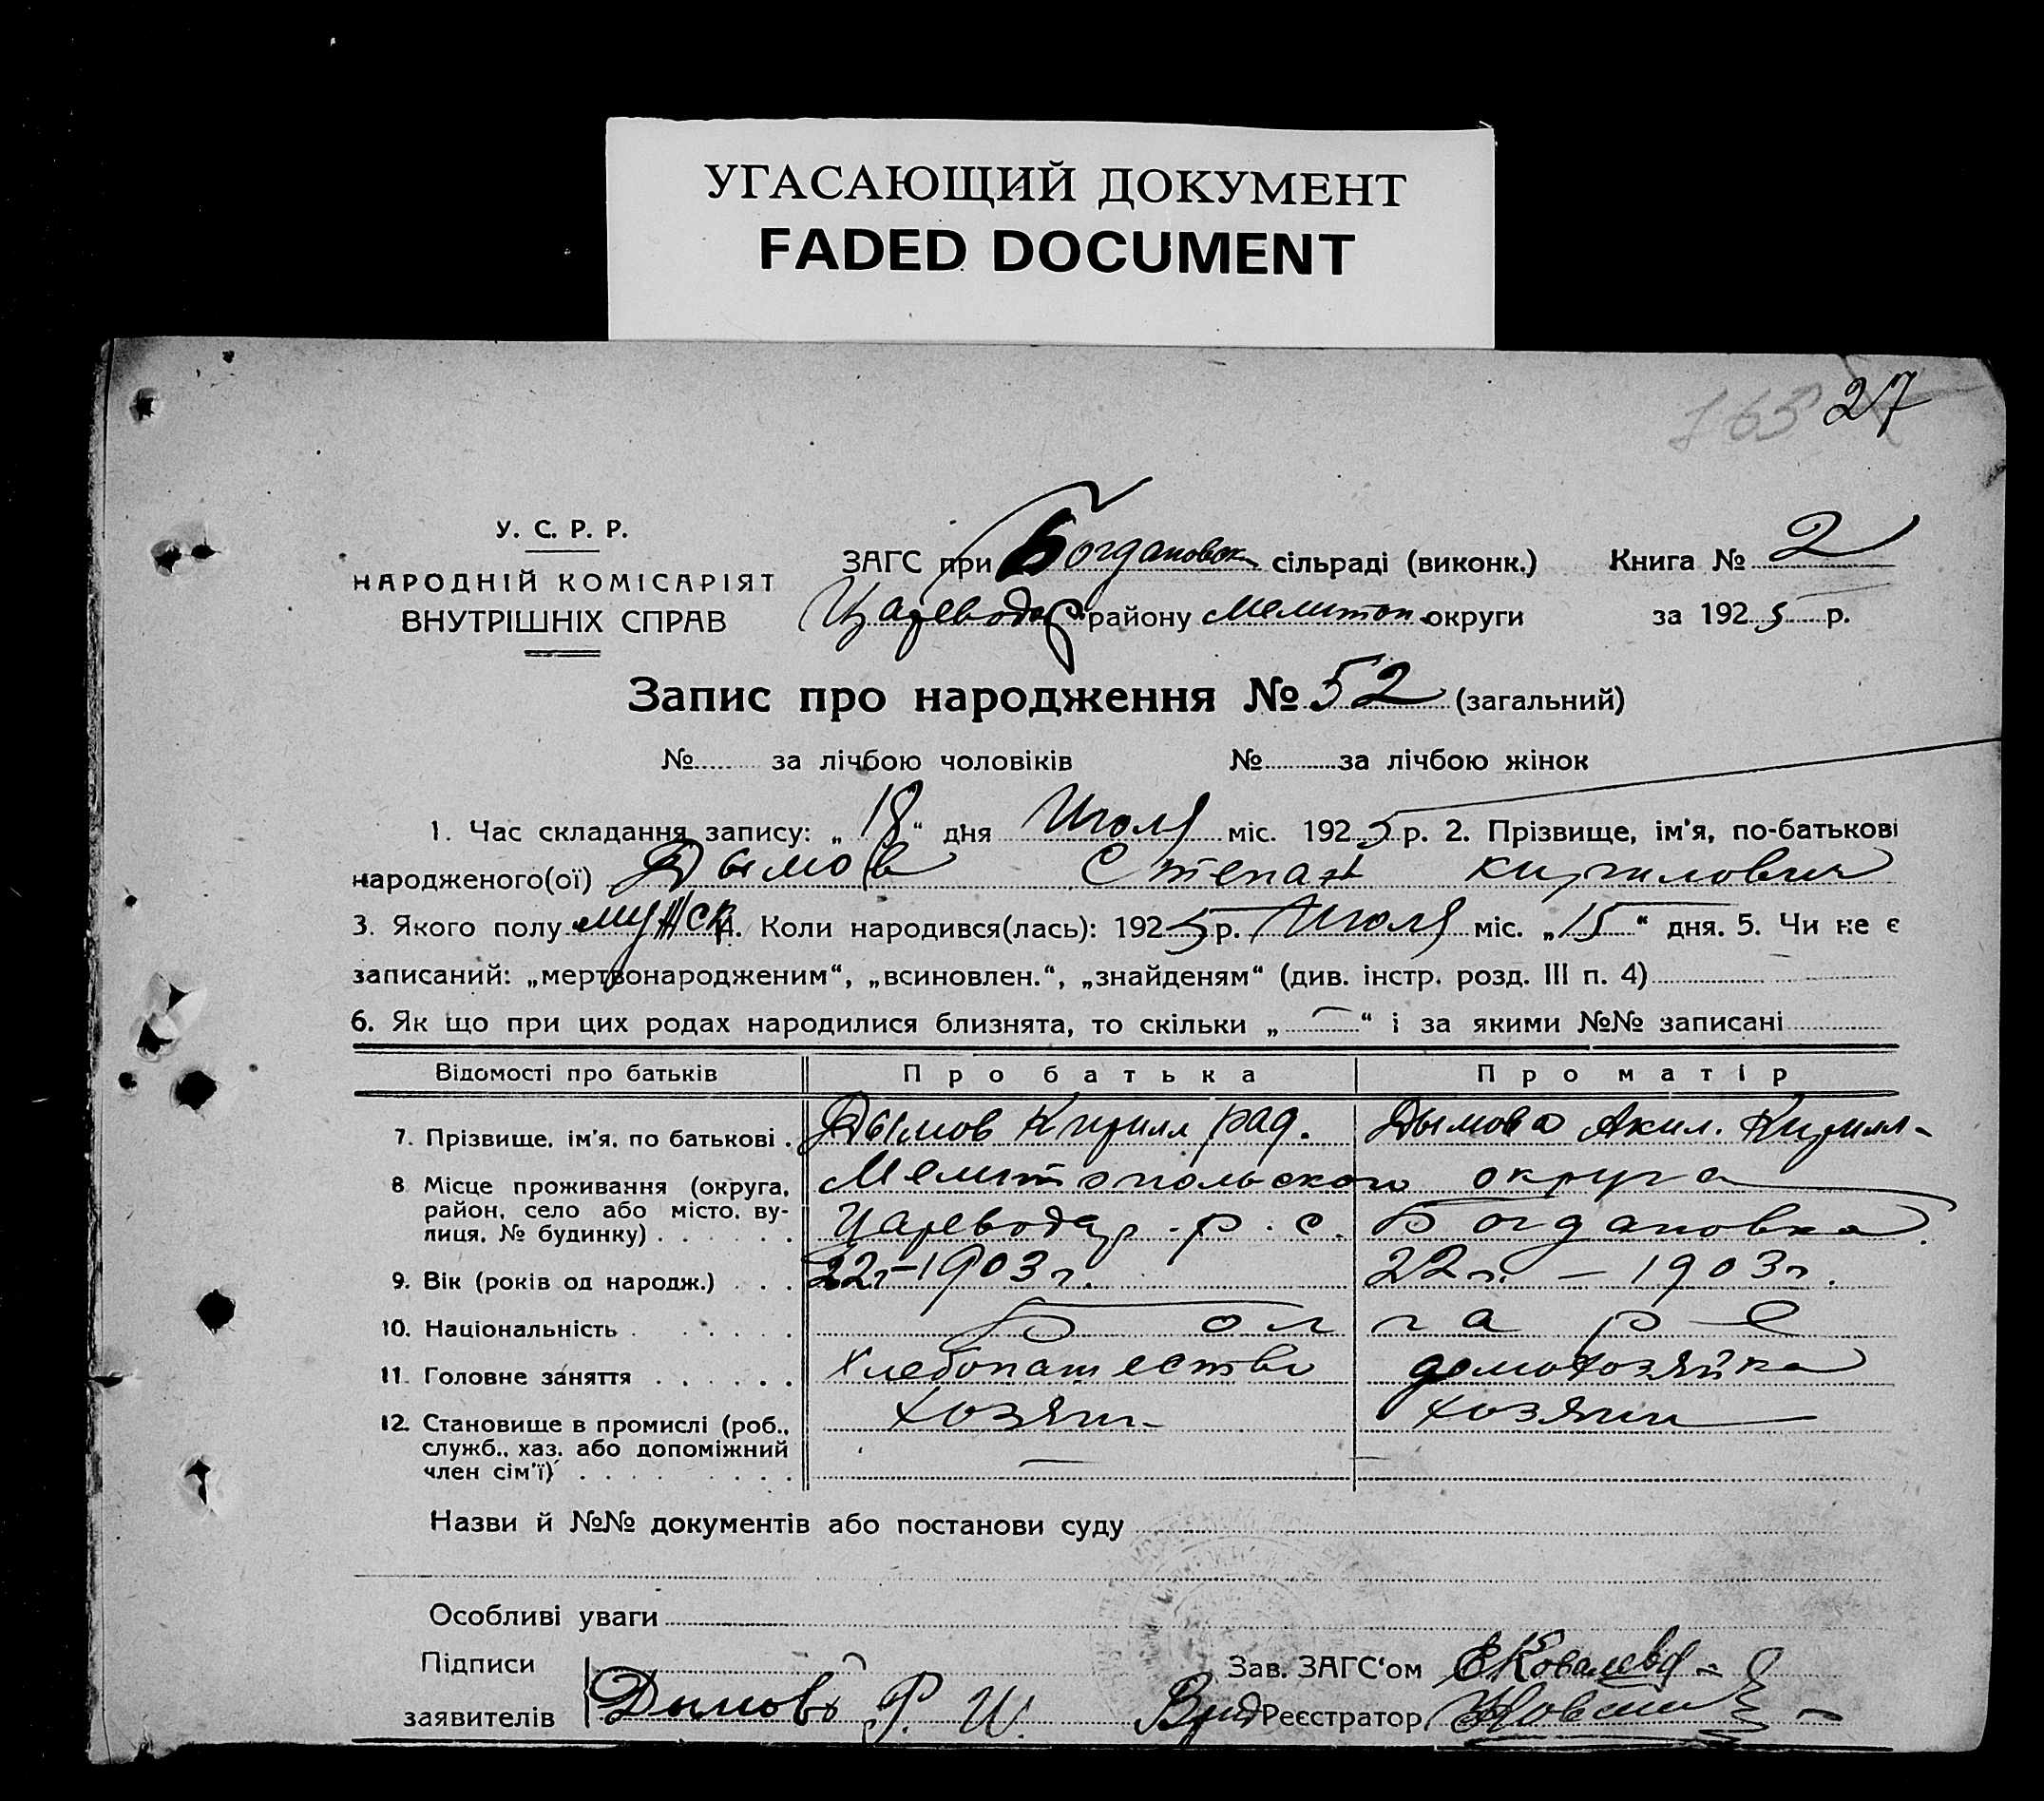 УГАСАЮЩИЙ ДОКУМЕНТ
FADED DOCUMENT
163 27
У. С. Р. Р.
НАРОДНІЙ КОМІСАРІЯТ
ВНУТРІШНІХ СПРАВ
ЗАГС при Богдановск сільраді (виконк.)
Цареводар району Мелитоп округи
Книга № 2
за 1925 р.
Запис про народження № 52 (загальний)
№ за лічбою чоловіків № за лічбою жінок
1. Час складання запису: „18“ дня Июля міс. 1925 р. 2. Прізвище, ім'я, по-батькові
народженого(ої) Дымов Степан Кирилович
3. Якого полу мужск 4. Коли народився(лась): 1925 р. Июля міс. „15“ дня. 5. Чи не є
записаний: „мертвонародженим“, „всиновлен.“, „знайденям“ (див. інстр. розд. III п. 4)
6. Як що при цих родах народилися близнята, то скільки „—“ і за якими №№ записані
Відомості про батьків Про батька Про матір
7. Прізвище, ім'я, по батькові . Дымов Кирилл рад. Дымова Акил. Кирилл-
8 Місце проживання (округа, район, село або місто, вулиця, № будинку) . . . . . . Мелитопольского округа
Цареводар. р. с. Богдановка.
9. Вік (років од народж.) . . . 22г-1903г. 22г. – 1903г.
10. Національність . . . . . . Болгаре
11. Головне заняття . . . . . . Хлебопашество домохозяйка
12. Становище в промислі (роб., служб., хаз. або допоміжний член сім'ї) . . . . . . . . хозяин- хозяин
Назви й №№ документів або постанови суду
Особливі уваги
Підписи
заявителів Дымовъ Р. И.
Зав. ЗАГС‘ом ЕКовалева
Врид Реєстратор